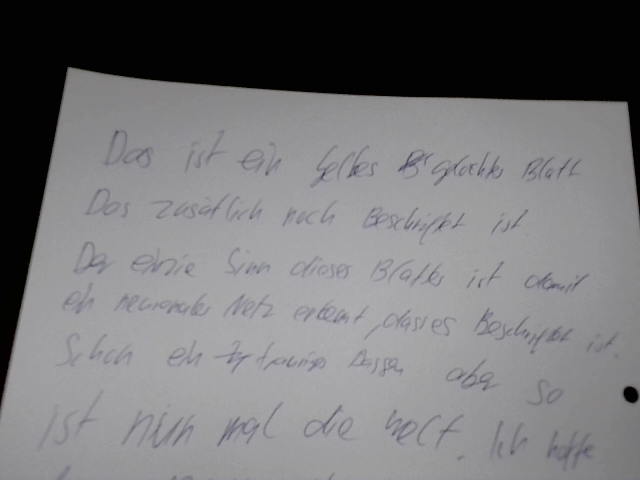 Das ist ein gelbes gelochtes Blatt
Das zusätlich noch Beschriftet ist.
Der einzie Sinn dieses Blattes ist damit
ein neuronales Netz erkennt, dass es Beschriftet ist.
Schon ein trauriges aber so
ist nun mal die Welt. Ich hoffe